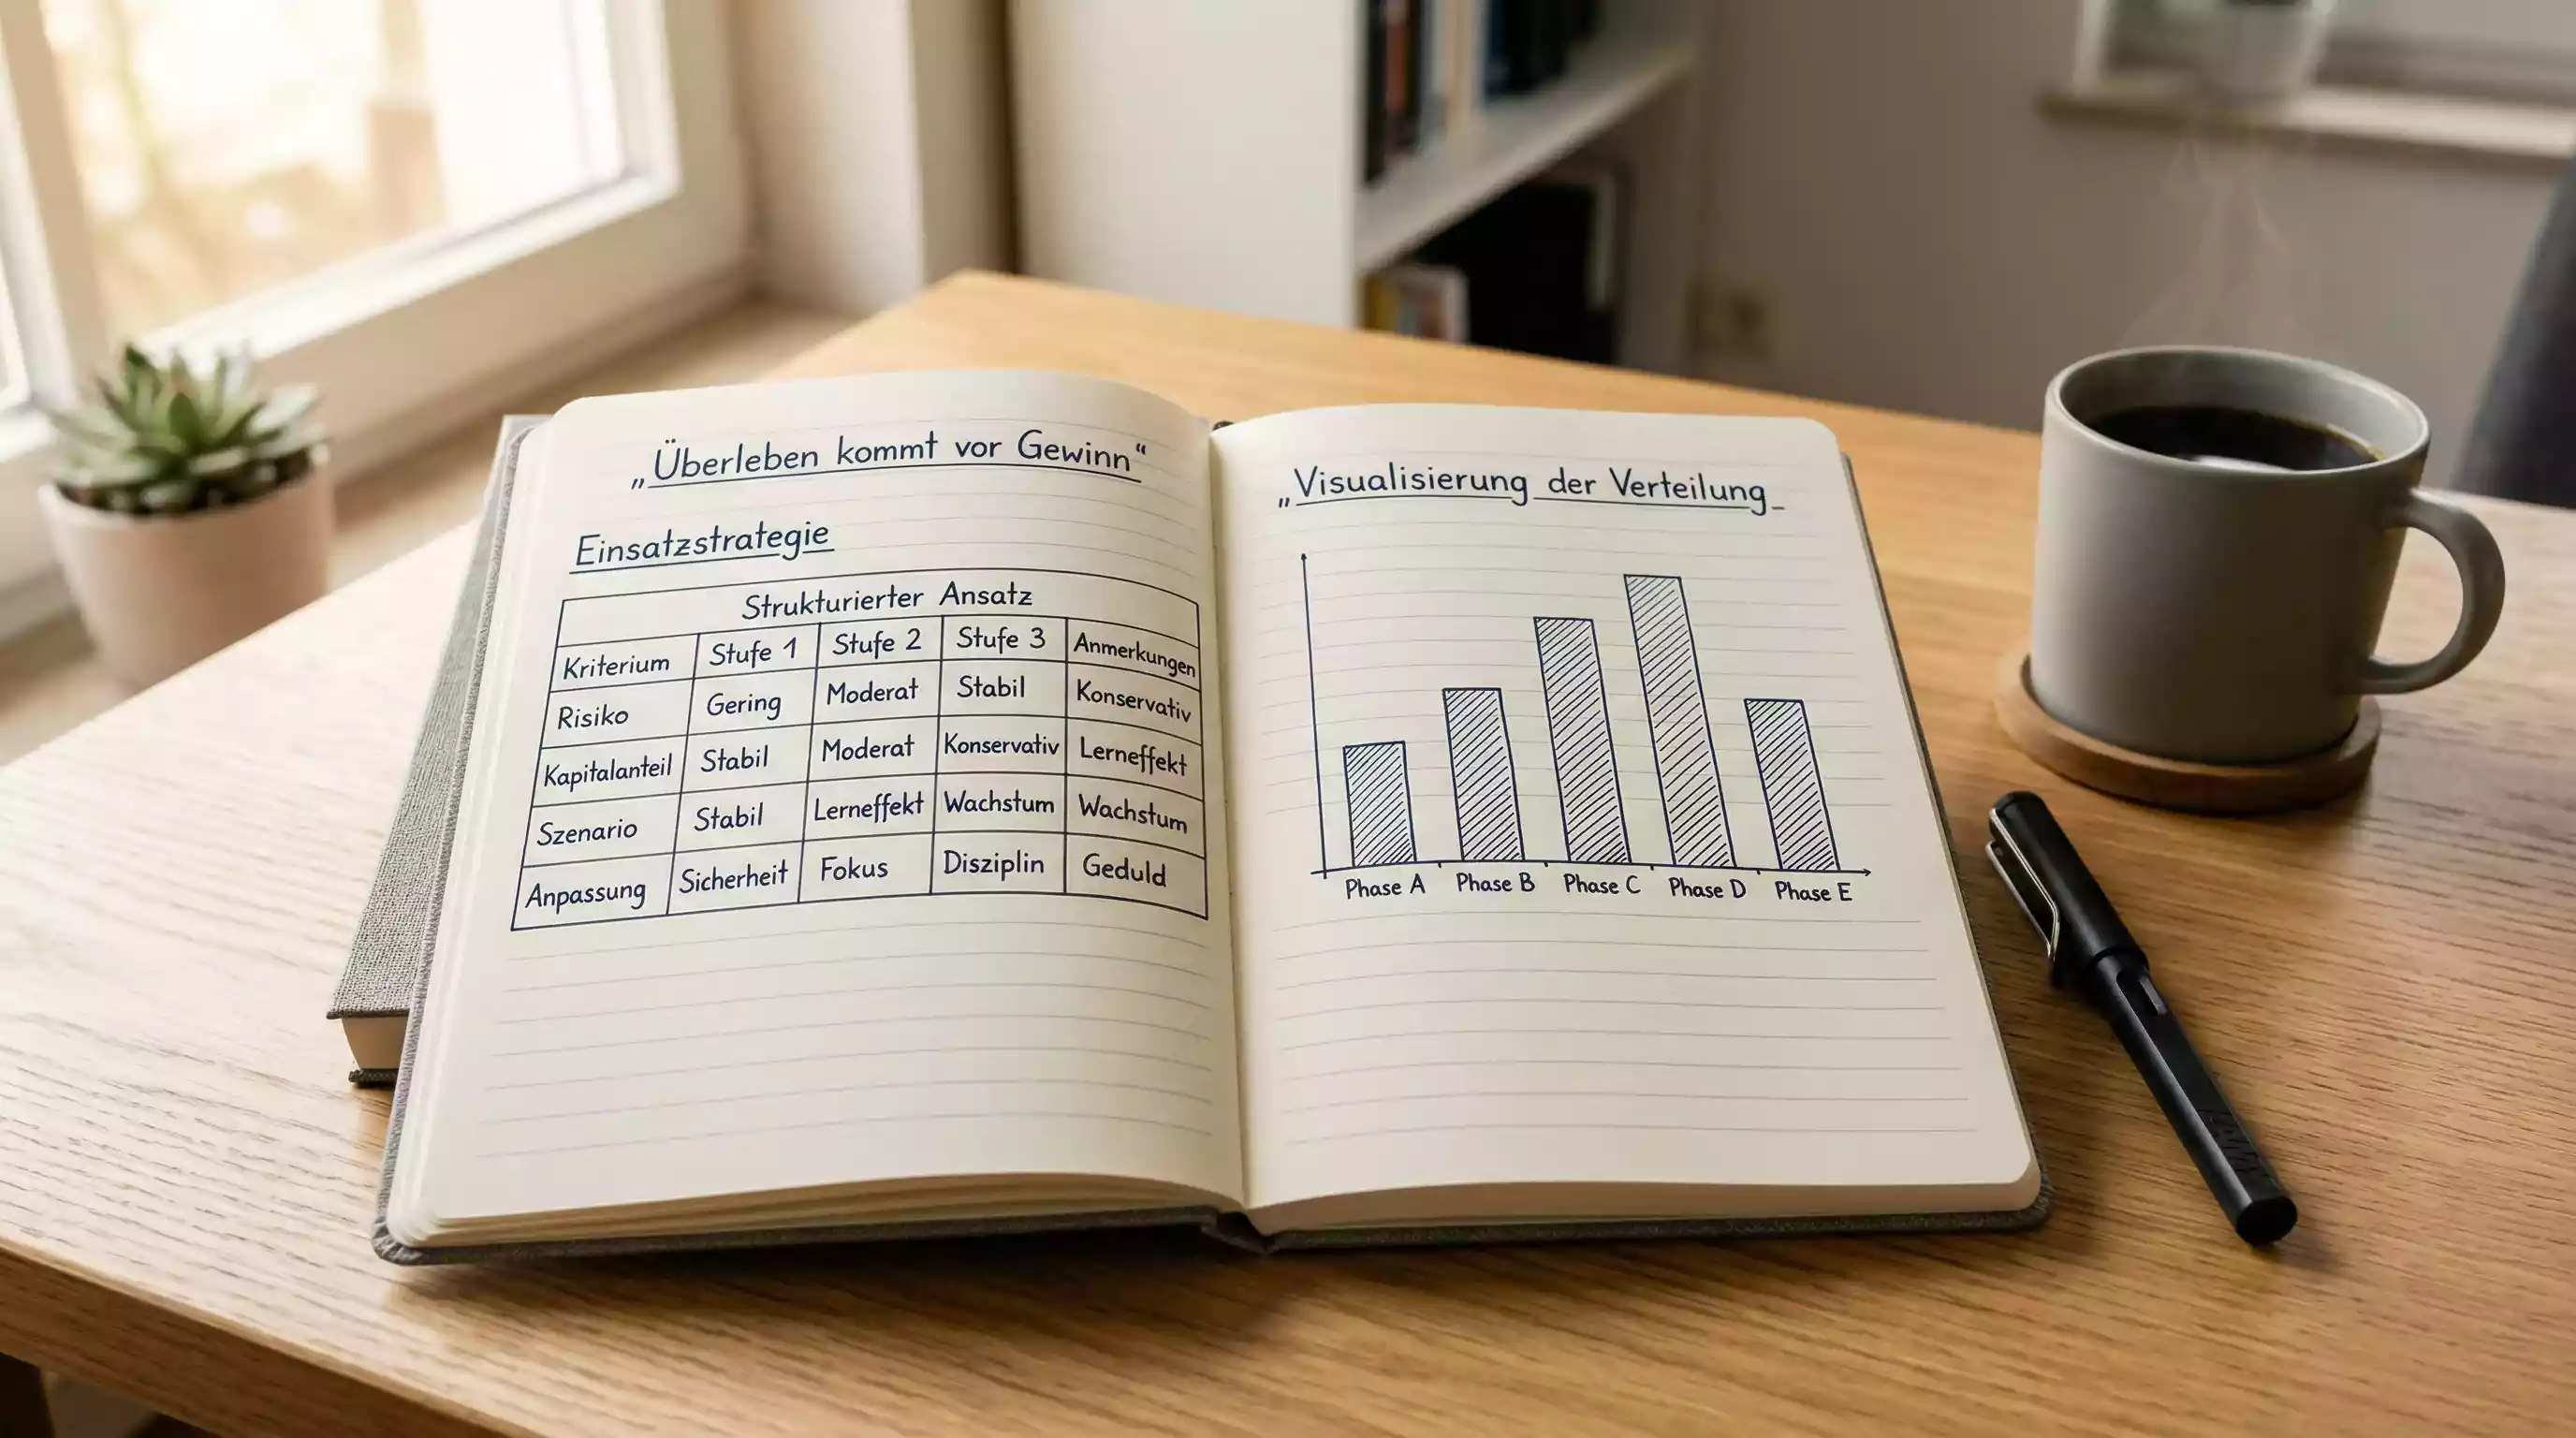 „Überleben kommt vor Gewinn“
Einsatzstrategie
Strukturierter Ansatz
Kriterium Stufe 1 Stufe 2 Stufe 3 Anmerkungen
Risiko Gering Moderat Stabil Konservativ
Kapitalanteil Stabil Moderat Konservativ Lerneffekt
Szenario Stabil Lerneffekt Wachstum Wachstum
Anpassung Sicherheit Fokus Disziplin Geduld
„Visualisierung der Verteilung
Phase A Phase B Phase C Phase D Phase E